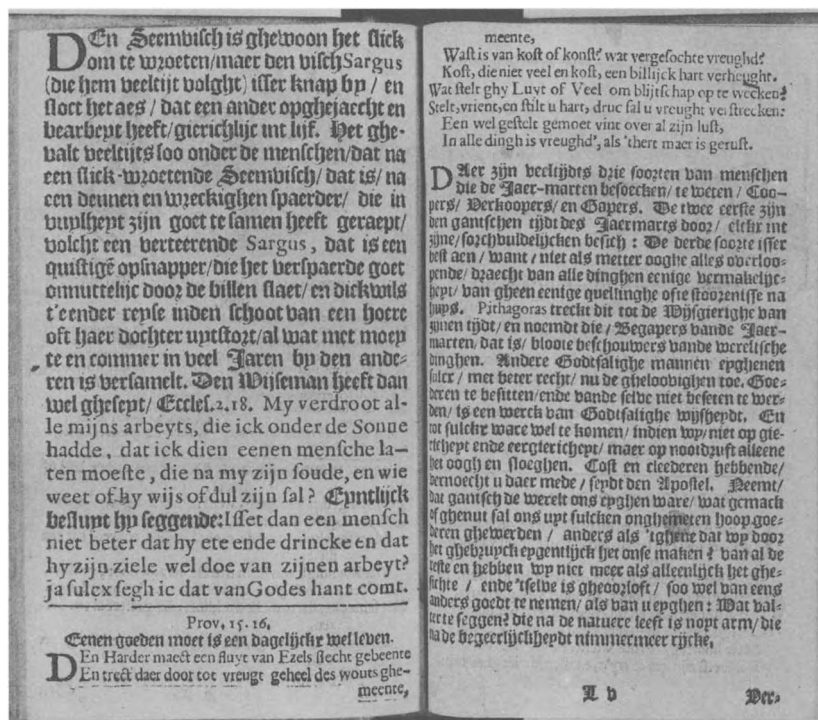 DEn Seemvisch is ghewoon het slick
om te wroeten/maer den visch Sargus
(die hem veeltijt volght) isser knap by / en
sloct het aes / dat een ander opghejaecht en
bearbeyt heeft/gierichlijc int lijf. Het ghe-
valt veeltijts soo onder de menschen/dat na
een slick-wroetende Seemvisch/ dat is/ na
een deunen en wreckighen spaerder/ die in
vuylheyt zijn goet te samen heeft geraept/
volcht een verteerende Sargus, dat is een
quistigē opsnapper/die het verspaerde goet
onnuttelijc door de billen slaet/ en dickwils
t'eender reyse inden schoot van een hoere
oft haer dochter uytstort/al wat met moey
te en commer in veel Jaren by den ande-
ren is versamelt. Den Wijseman heeft dan
wel gheseyt/ Eccles.2.18. My verdroot al-
le mijns arbeyts, die ick onder de Sonne
hadde, dat ick dien eenen mensche la-
ten moeste, die na my zijn soude, en wie
weet of hy wijs of dul zijn sal? Eyntlijck
besluyt hy seggende: Isset dan een mensch
niet beter dat hy ete ende drincke en dat
hy zijn ziele wel doe van zijnen arbeyt?
ja sulcx segh ic dat van Godes hant comt.
Prov. 15. 16.
Eenen goeden moet is een dagelijckx wel leven.
DEn Harder maect een fluyt van Ezels slecht gebeente
En trect daer door tot vreugt geheel des wouts ghe-
meente,
meente,
Wast is van kost of konst? wat vergesochte vreughd?
Kost, die niet veel en kost, een billijck hart verheught.
Wat stelt ghy Luyt of Veel om blijtschap op te wecken?
Stelt, vrient, en stilt u hart, druc sal u vreught verstrecken:
Een wel gestelt gemoet vint over al zijn lust,
In alle dingh is vreughd', als 'thert maer is gerust.
DAer zijn veeltijdts drie soorten van menschen
die de Jaer-marten besoecken/ te weten / Coo-
pers/ Verkoopers/ en Gapers. De twee eerste zijn
den gantschen tijdt des Jaermarts door/ elckx int
zijne/ sorchvuldelijcken besich : De derde soorte isser
best aen / want / niet als metter ooghe alles overloo-
pende/ draecht van alle dinghen eenige vermakelijc-
heyt/ van gheen eenige quellinghe ofte stoorenisse na
huys. Pithagoras treckt dit tot de Wijsgierighe van
zijnen tijdt/ en noemdt die / Begapers vande Jaer-
marten, dat is/ bloote beschouwers vande wereltsche
dinghen. Andere Godtsalighe mannen eyghenen
sulcx / met beter recht/ nu de gheloovighen toe. Goe-
deren te besitten/ende vande selve niet beseten te wer-
den/ is een werck van Godtsalighe wijsheydt. En
tot sulckx ware wel te komen/ indien wy/ niet op gie-
richeyt ende eergiericheyt/ maer op nootdruft alleene
het oogh en sloeghen. Cost en cleederen hebbende/
vernoecht u daer mede / seydt den Apostel. Neemt/
dat gantsch de werelt ons eyghen ware/ wat gemack
of ghenut sal ons uyt sulcken onghemeten hoop goe-
deren ghewerden / anders als 'tghene dat wy door
het ghebruyck eygentlijck het onse maken? van al de
reste en hebben wy niet meer als alleenlijck het ghe-
sichte / ende 'tselve is gheoorloft / soo wel van eens
anders goedt te nemen/ als van u eyghen : Wat val-
ter te seggen? die na de natuere leeft is noyt arm/ die
na de begeerlijckheydt nimmermeer rijcke.
L v
Ver-